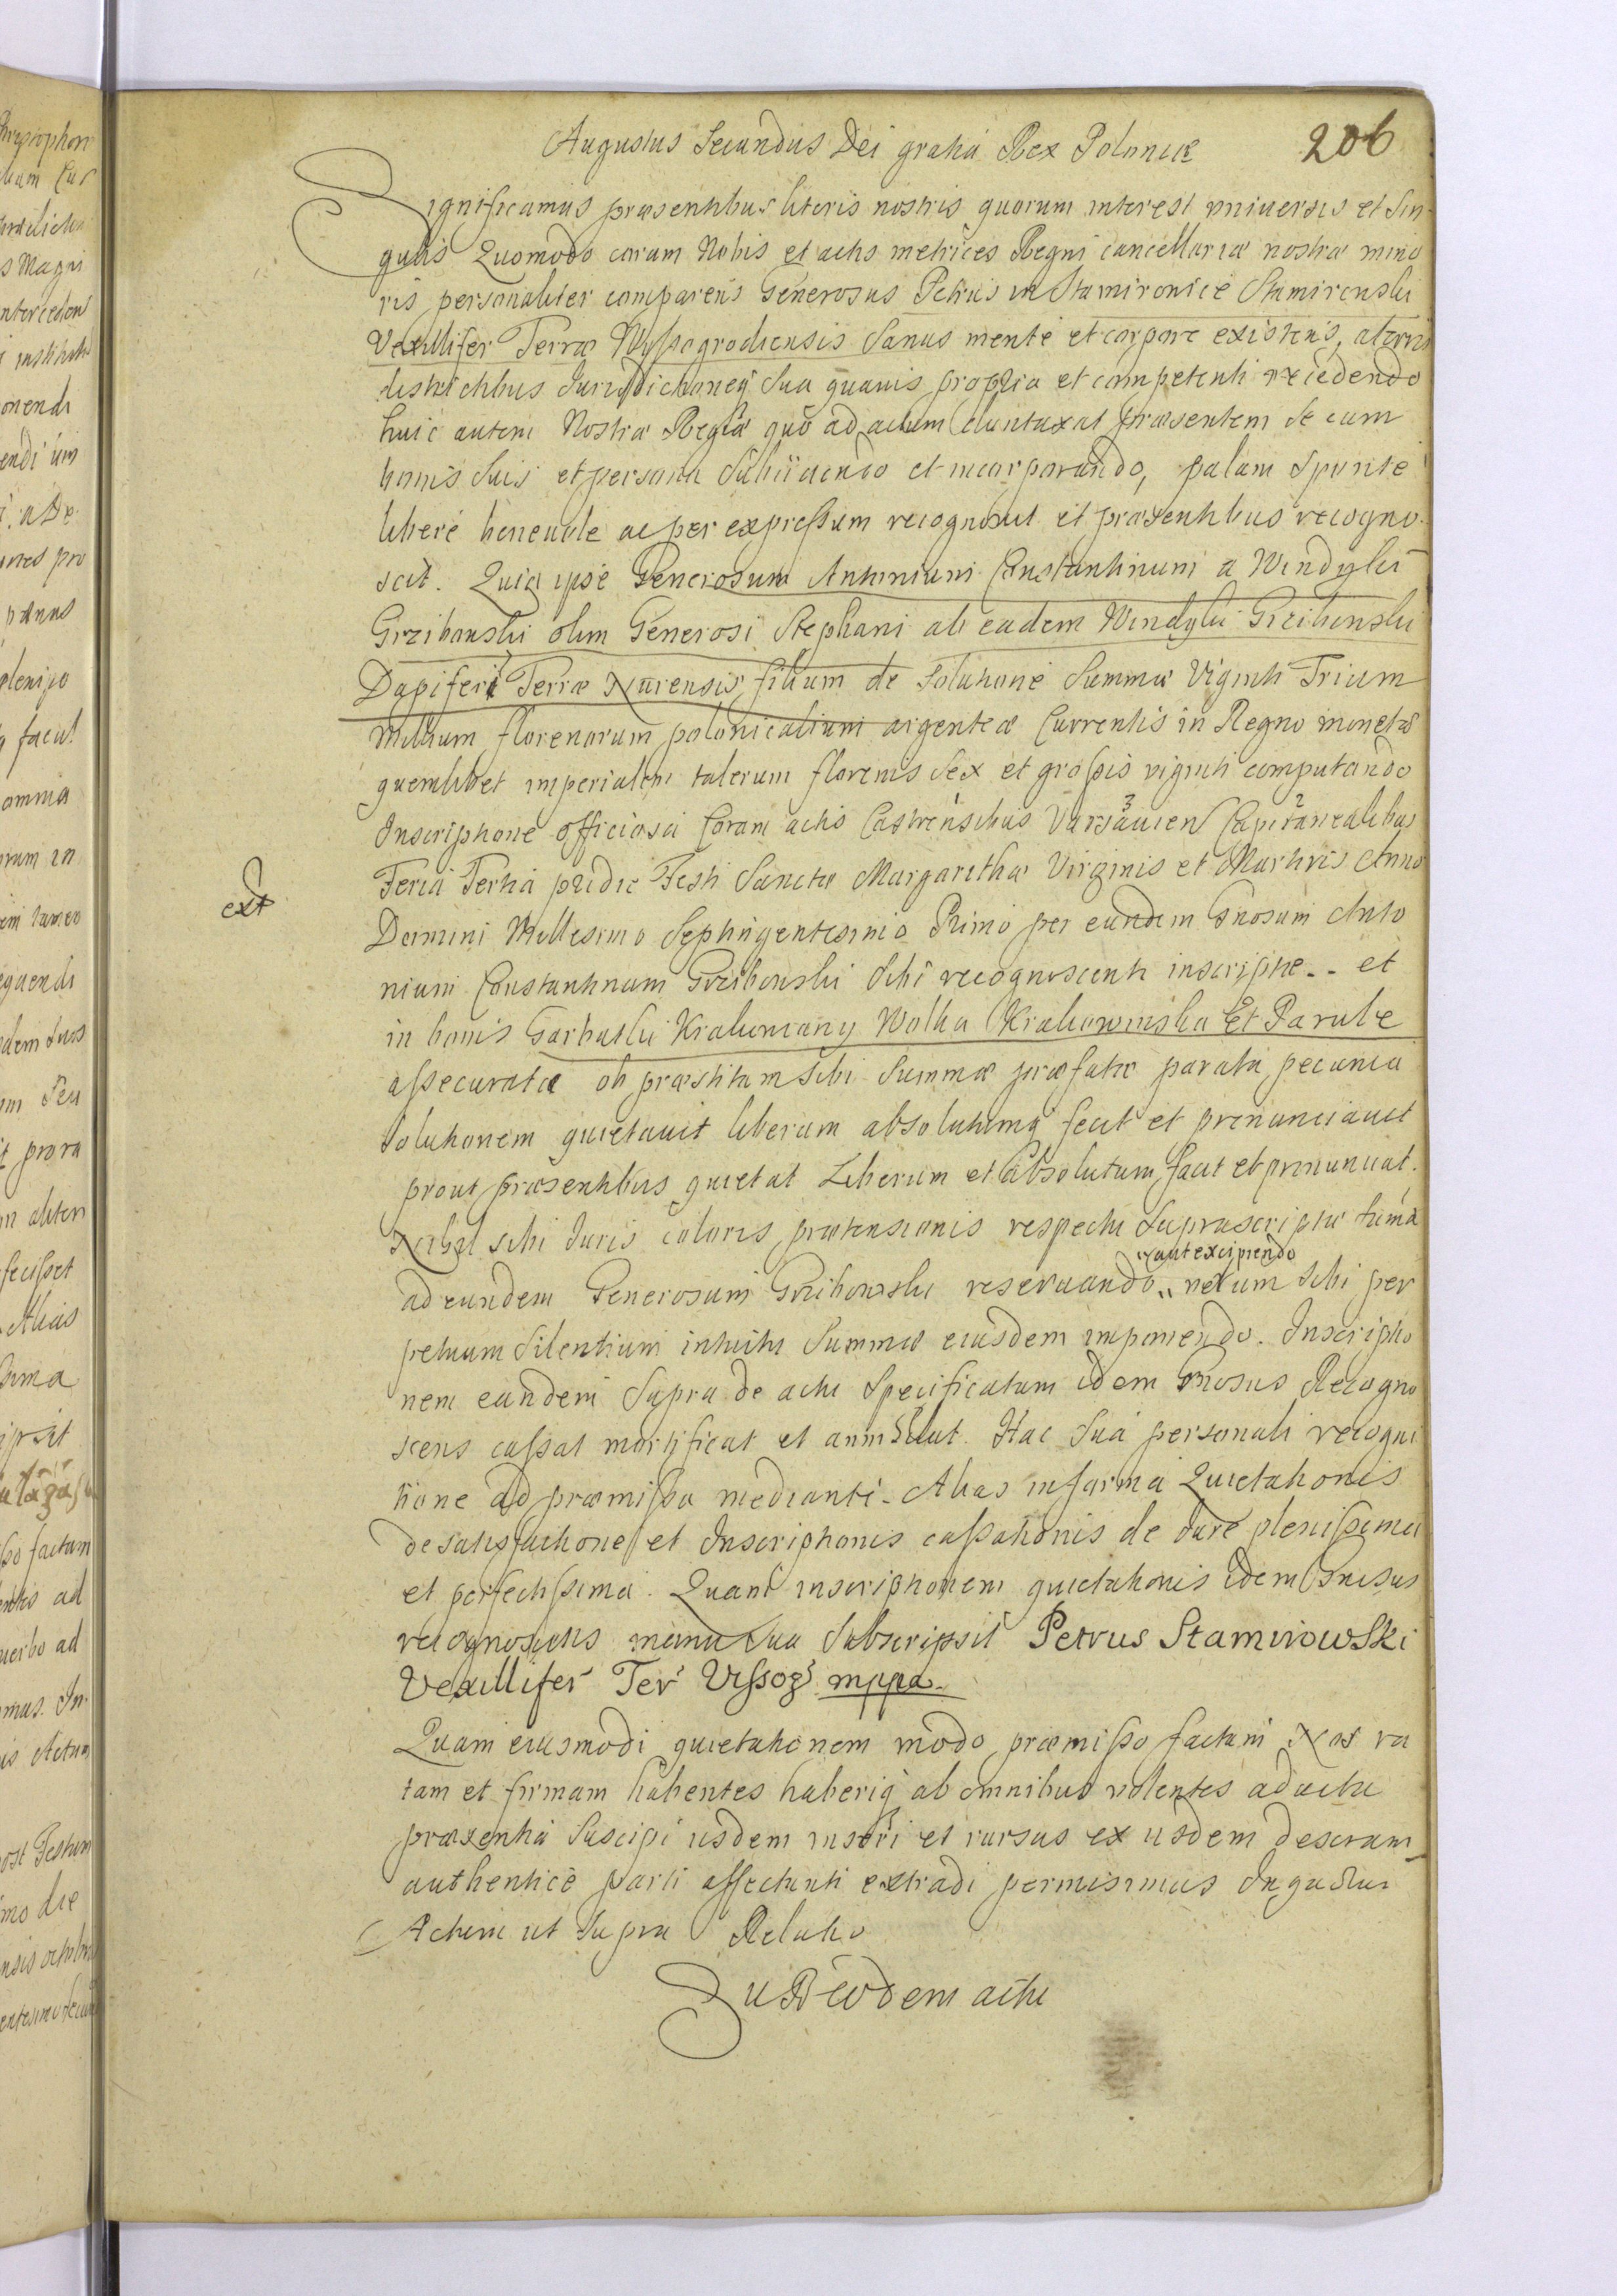 Augustus Secundus Dei gratia Rex Poloniæ 206
Significamus præsentibus literis nostris quorum interest vniuersis et sin-
gulis Quomodo coram Nobis et actis metrices Regni cancellariæ nostræ mino
ris personaliter comparens Generosus Petrus in Stamirowice Stamirowski
Vexillifer Terræ Wyssogrodiensis Sanus mente et corpore existens, a terris
districtibus Iurisdictioneq Sua quauis propria et competenti recedendo
huic autem Nostræ Regiæ quo ad actum duntaxat præsentem se cum
bonis Suis et persona Subiiciendo et incorporando, palam Sponte
libere beneuole ac per expressum recognouit et præsentibus recogno-
scit. Quia ipse Generosum Antonium Constantinum a Windyki
Grzibowski olim Generosi Stephani ab eadem Windyki Grzibowski
Dapiferi Terræ Nurensis filium de Solutione Summæ Viginti Trium
Millium florenorum polonicalium argenteæ Currentis in Regno monetæ
quemlibet imperialem talerum florenis Sex et grossis viginti computando
Inscriptione officiosa Coram actis Castrensibus Varsauien 3 Capitanealibus 2
Feria Tertia pridie Festi Sanctæ Margarethæ Virginis et Martiris Anno
ext
Domini Millesimo Septingentesimo Primo per eundem Gnosum Anto
nium Constantinum Grzibowski Sibi recognoscenti inscriptæ -- et
in bonis Garbatki Krakowiany Wolka Krakowinska Et Parule
assecuratæ ob præstitam Sibi Summæ præfatæ parata pecunia
Solutionem quietauit liberum absolutumq fecit et pronunciauit
prout præsentibus quietat Liberum et absolutum facit et pronunciat.
Nihil sibi Iuris coloris prætensionis respectu Suprascriptæ Sumæ
"aut excipiendo
ad eundem Generosum Grzibowski reseruando " verum Sibi per
petuum Silentium intuitu Summæ eiusdem imponendo. Inscriptio
nem eandem Supra de actu Specificatam idem Gnosus Recogno
scens cassat mortificat et annihilat. Hac Sua personali recogni
tione ad præmissa mediante. Alias in forma Quietationis
de satisfactione et Inscriptionis cassationis de Iure plenissima
et perfectissima. Quam inscriptionem quietationis idem Gnosus
recognoscens manu Sua Subscripsit Petrus Stamirowski
Vexillifer Ter Vissog mppa.
Quam eiusmodi quietationem modo præmisso factam Nos ra
tam et firmam habentes haberiq ab omnibus volentes ad acta
præsentia Suscipi iisdem inseri et rursus ex iisdem descram
authentice parti affectanti extradi permisimus
Actum ut Supra Relatio
Sub eodem actu